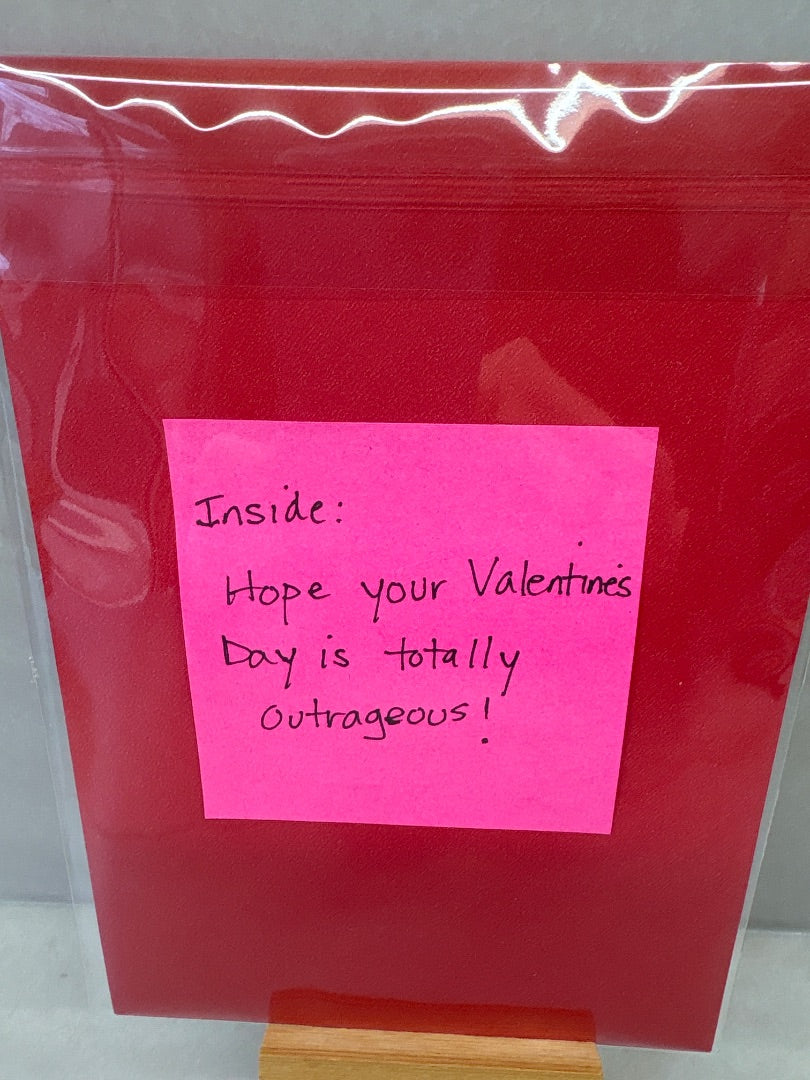 Inside:
Hope your Valentine's
Day is totally
outrageous!